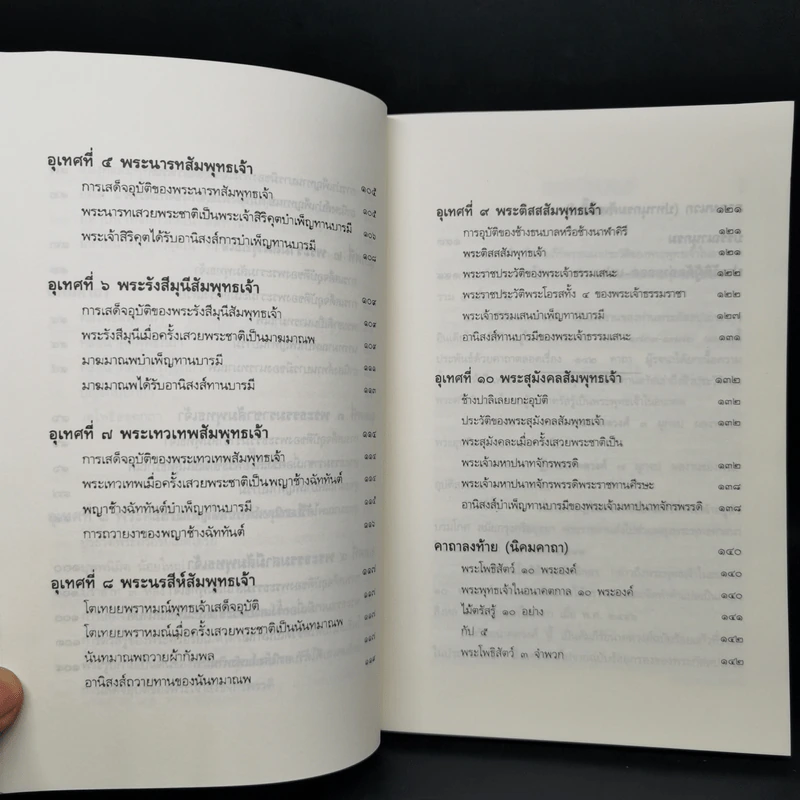 อุเทศที่ ๕ พระนารทสัมพุทธเจ้า ๑๐๕
การเสด็จอุบัติของพระนารทสัมพุทธเจ้า ๑๐๕
พระนารทเสวยพระชาติเป็นพระเจ้าสิริคุตบำเพ็ญทานบารมี ๑๐๖
พระเจ้าสิริคุตได้รับอานิสงส์การบำเพ็ญทานบารมี ๑๐๘
อุเทศที่ ๖ พระรังสีมุนีสัมพุทธเจ้า ๑๐๙
การเสด็จอุบัติของพระรังสีมุนีสัมพุทธเจ้า ๑๐๙
พระรังสีมุนีเมื่อครั้งเสวยพระชาติเป็นมาฆมาณพ ๑๐๙
มาฆมาณพบำเพ็ญทานบารมี ๑๑๑
มาฆมาณพได้รับอานิสงส์ทานบารมี ๑๑๓
อุเทศที่ ๗ พระเทวเทพสัมพุทธเจ้า ๑๑๔
การเสด็จอุบัติของพระเทวเทพสัมพุทธเจ้า ๑๑๔
พระเทวเทพเมื่อครั้งเสวยพระชาติเป็นพญาช้างฉัททันต์ ๑๑๔
พญาช้างฉัททันต์บำเพ็ญทานบารมี ๑๑๕
การถวายงาของพญาช้างฉัททันต์ ๑๑๖
อุเทศที่ ๘ พระนรสีห์สัมพุทธเจ้า ๑๑๗
โตเทยยพราหมณ์พุทธเจ้าเสด็จอุบัติ ๑๑๗
โตเทยยพราหมณ์เมื่อครั้งเสวยพระชาติเป็นนันทมาณพ ๑๑๗
นันทมาณพถวายผ้ากัมพล ๑๑๗
อานิสงส์ถวายทานของนันทมาณพ
อุเทศที่ ๙ พระติสสสัมพุทธเจ้า ๑๒๑
การอุบัติของช้างธนบาลหรือช้างนาฬาคีรี ๑๒๑
พระติสสสัมพุทธเจ้า ๑๒๑
พระราชประวัติของพระเจ้าธรรมเสนะ ๑๒๒
พระราชประวัติพระโอรสทั้ง ๔ ของพระเจ้าธรรมราชา ๑๒๒
พระเจ้าธรรมเสนบำเพ็ญทานบารมี ๑๒๗
อานิสงส์ทานบารมีของพระเจ้าธรรมเสนะ ๑๓๑
อุเทศที่ ๑๐ พระสุมังคลสัมพุทธเจ้า ๑๓๒
ช้างปาลิเลยยกะอุบัติ ๑๓๒
ประวัติของพระสุมังคลสัมพุทธเจ้า ๑๓๒
พระสุมังคละเมื่อครั้งเสวยพระชาติเป็น
พระเจ้ามหาปนาทจักรพรรดิ ๑๓๒
พระเจ้ามหาปนาทจักรพรรดิพระราชทานศีรษะ ๑๓๘
อานิสงส์บำเพ็ญทานบารมีของพระเจ้ามหาปนาทจักรพรรดิ ๑๓๘
คาถาลงท้าย (นิคมคาถา) ๑๔๐
พระโพธิสัตว์ ๑๐ พระองค์ ๑๔๐
พระพุทธเจ้าในอนาคตกาล ๑๐ พระองค์ ๑๔๐
ไม้ตรัสรู้ ๑๐ อย่าง ๑๔๑
กัป ๕ ๑๔๒
พระโพธิสัตว์ ๓ จำพวก ๑๔๒